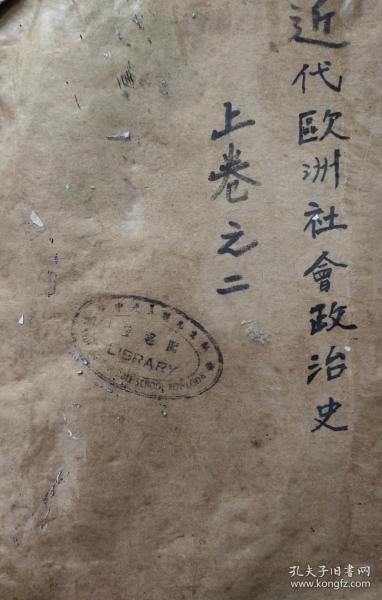 近代歐洲社會政治史
上卷之二
圖書館
LIBRARY
SCHOOL KOWLOON
孔夫子旧书网
www.kongfz.com